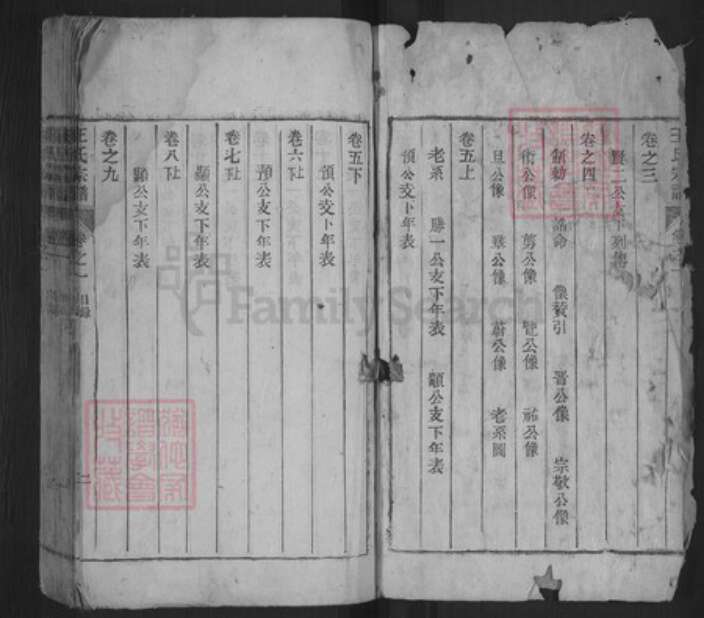 卷之三
賢二公支下列傳
卷之四
制勅 誥命 像贊引 晋公像 宗敬公像
衔公像 剪公像 覽公像 祐公像
旦公像 縣公像 蔚公像 老系圖
卷五上
老系 勝一公支下年表 顯公支下年表
預公支下年表
卷五下
預公支下年表
卷六
預公支下年表
卷七
顯公支下年表
卷八
顯公支下年表
卷之九
王氏宗譜 卷之一 目錄 二
FamilySearch